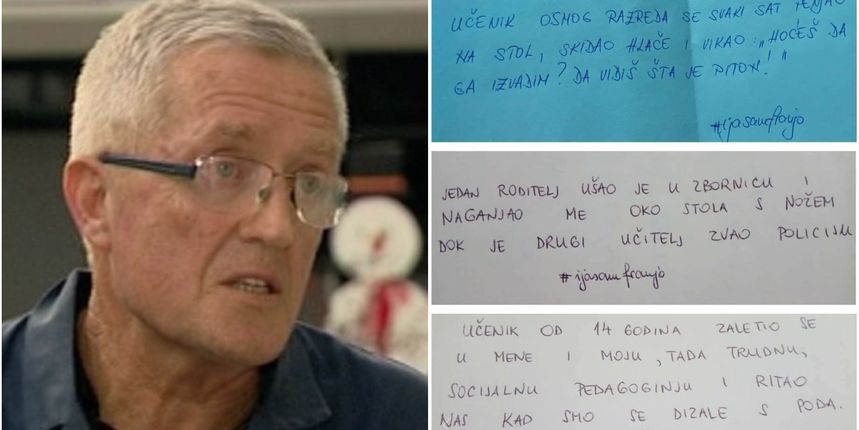 UČENIK OSMOG RAZREDA SE SVAKI SAT PENJAO
NA STOL, SKIDAO HLAČE I VIKAO: „HOĆEŠ DA
GA IZVADIM? DA VIDIŠ ŠTA JE PITON!"
#ijasamfranjo
JEDAN RODITELJ UŠAO JE U ZBORNICU I
NAGANJAO ME OKO STOLA S NOŽEM
DOK JE DRUGI UČITELJ ZVAO POLICIJU
#ijasamfranjo
UČENIK OD 14 GODINA ZALETIO SE
U MENE I MOJU, TADA TRUDNU,
SOCIJALNU PEDAGOGINJU I RITAO
NAS KAD SMO SE DIZALE S PODA.